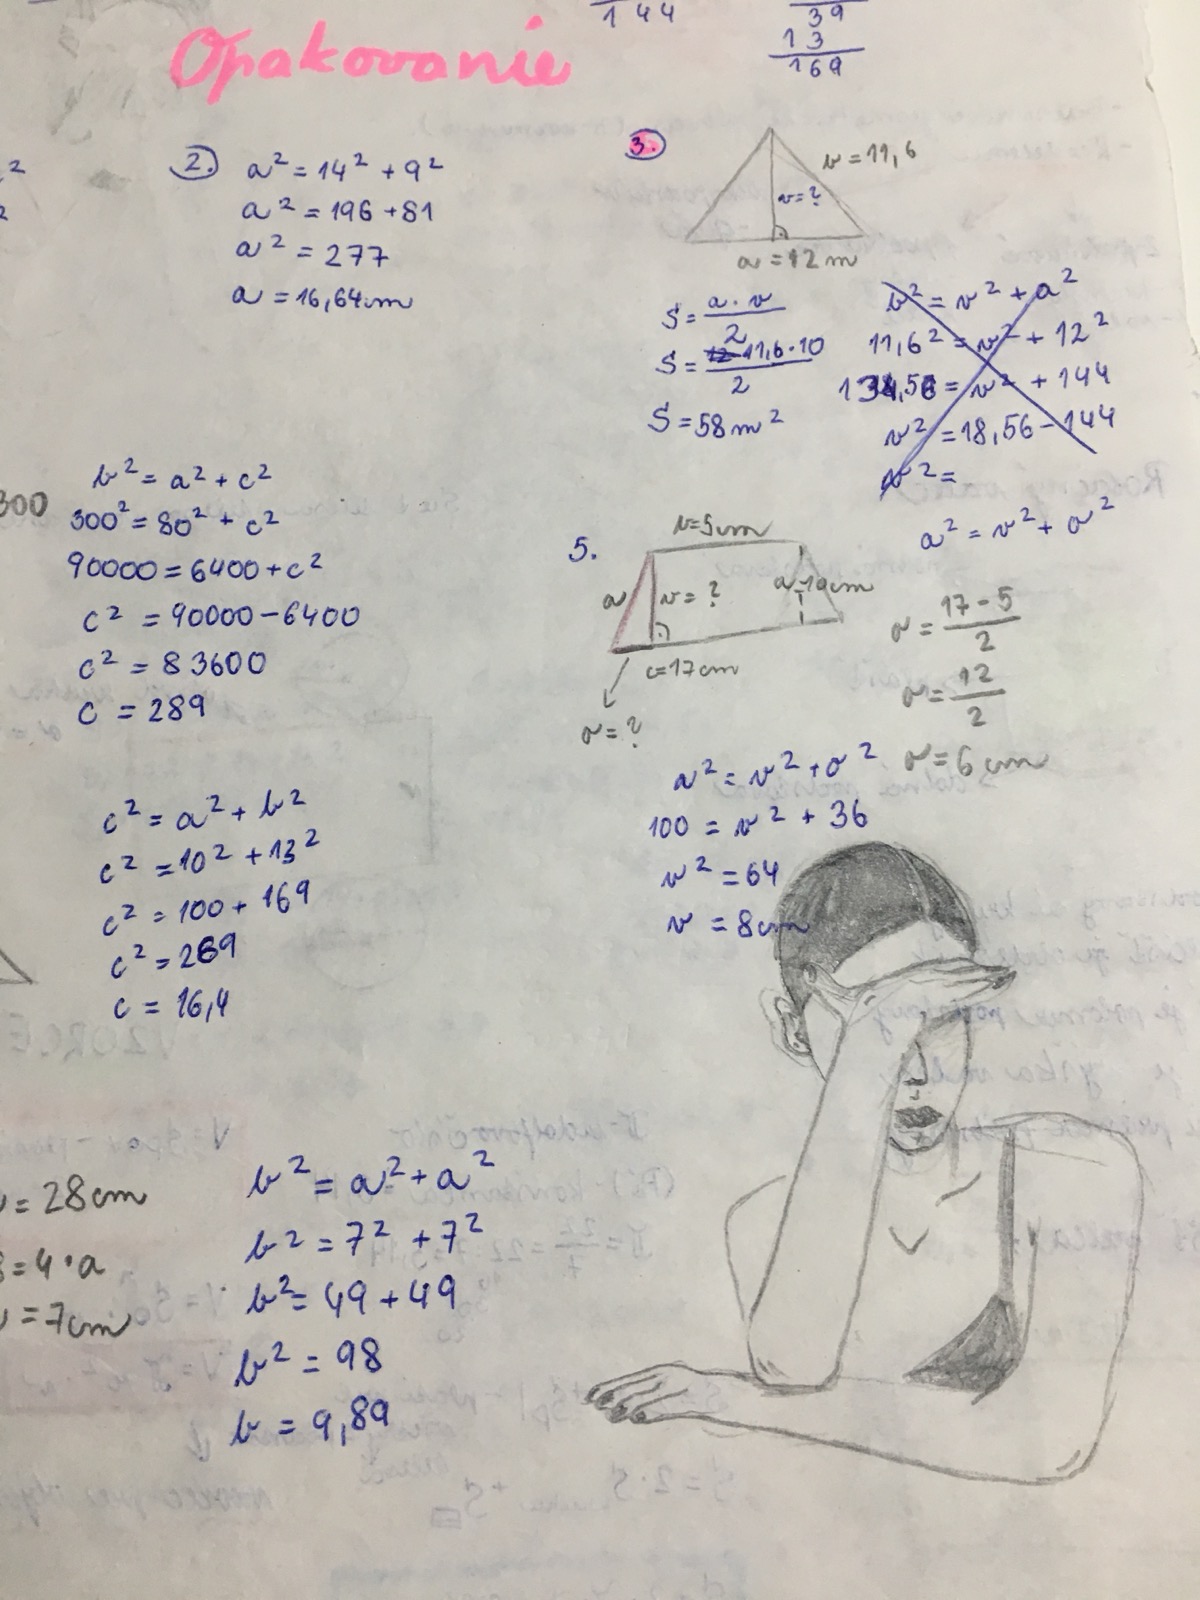 144
39
13
169
Opakovanie
2.) a² = 14² + 9²
a² = 196 + 81
a² = 277
a = 16,64cm
3.
b = 11,6
v = ?
a = 12 m
S = a · v / 2
S = 11,6 · 10 / 2
S = 58 m²
b² = v² + a²
11,6² = v² + 12²
= v² + 144
v² = 18,56 - 144
v² =
a² = v² + a²
300
b² = a² + c²
300² = 80² + c²
90000 = 6400 + c²
c² = 90000 - 6400
c² = 83600
c = 289
5.
b = 5cm
a
v = ?
a = 10cm
c = 17cm
a = ?
a = 17 - 5 / 2
a = 12 / 2
a = 6 cm
a² = v² + a²
100 = v² + 36
v² = 64
v = 8cm
c² = a² + b²
c² = 10² + 13²
c² = 100 + 169
c² = 269
c = 16,4
= 28cm
= 4 · a
= 7cm
b² = a² + a²
b² = 7² + 7²
b² = 49 + 49
b² = 98
b = 9,89